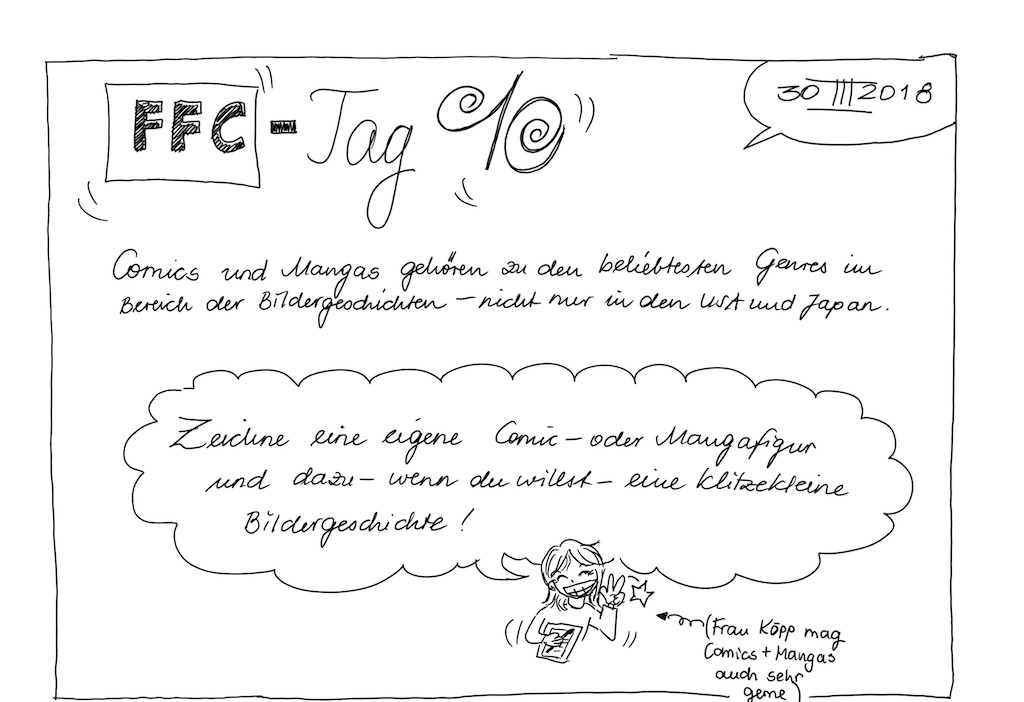 FFC-Tag 10
30 III 2018
Comics und Mangas gehören zu den beliebtesten Genres im
Bereich der Bildergeschichten – nicht nur in den USA und Japan.
Zeichne eine eigene Comic- oder Mangafigur
und dazu – wenn du willst – eine klitzekleine
Bildergeschichte!
(Frau Köpp mag
Comics + Mangas
auch sehr
gerne)